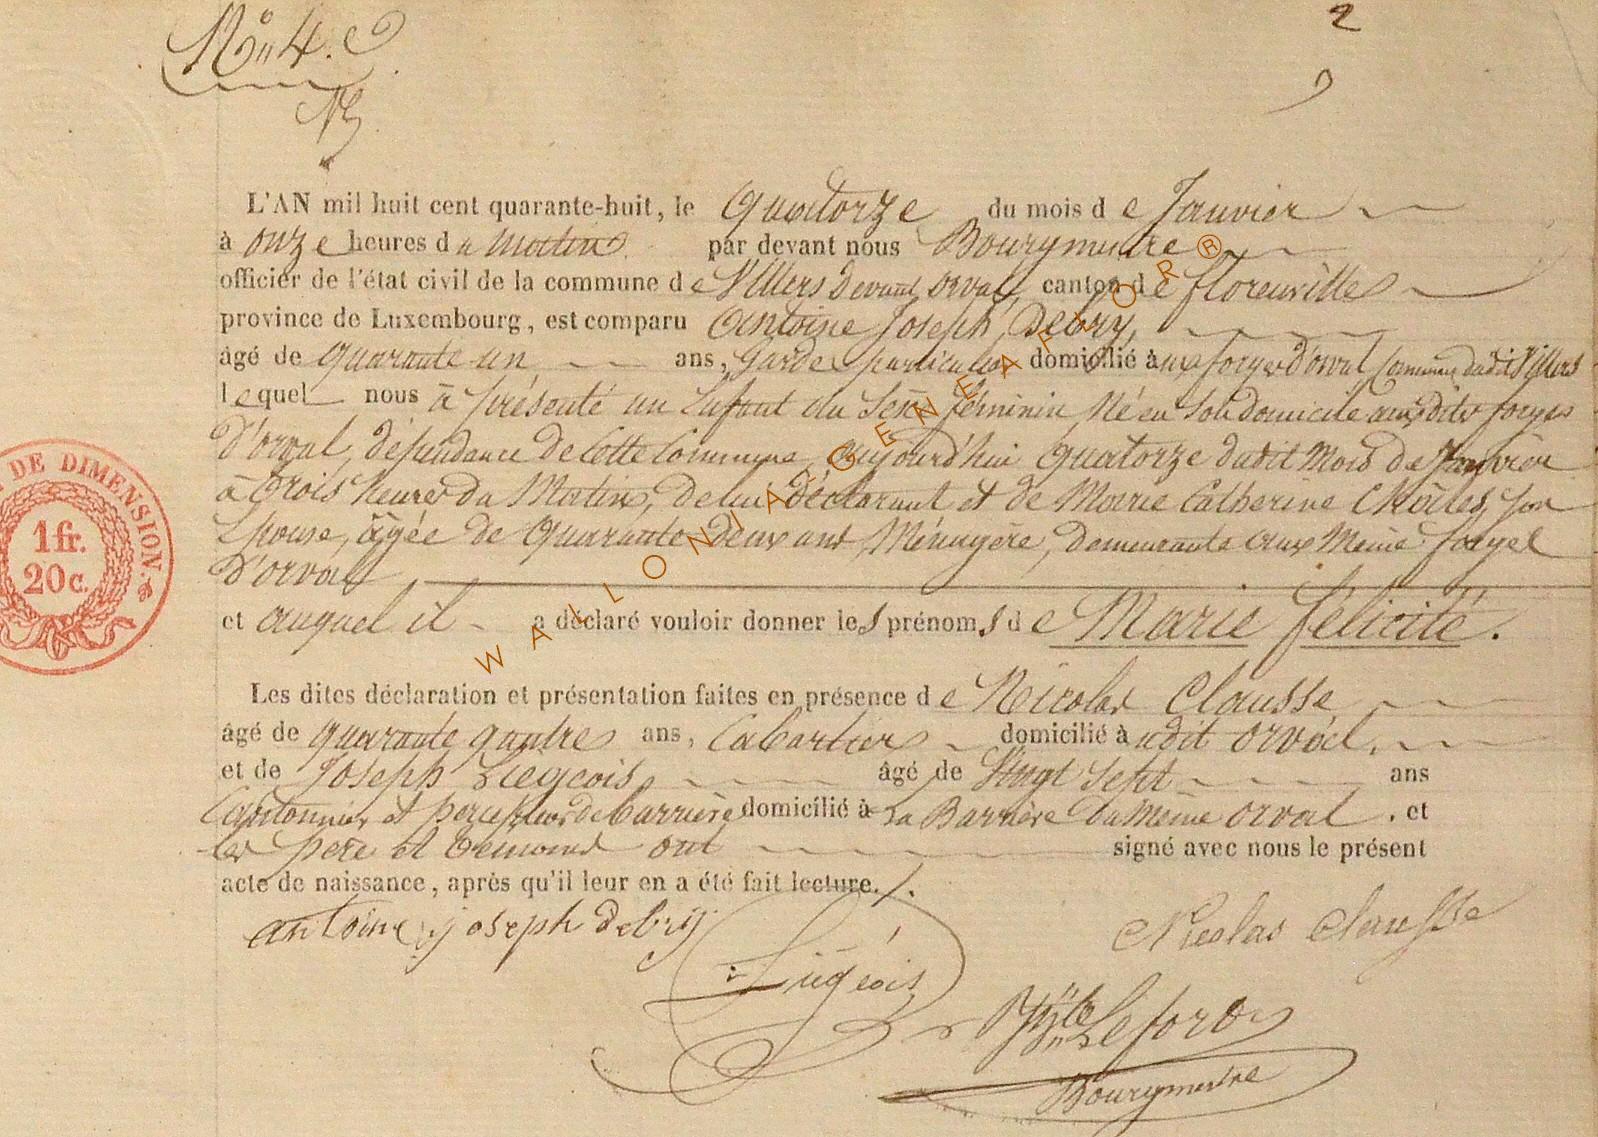 2
N° 4.
L'AN mil huit cent quarante-huit, le Quatorze du mois de Janvier
à onze heures du matin. par devant nous Bourgmestre
officier de l'état civil de la commune de Villers devant orval, canton de florenville
province de Luxembourg, est comparu Antoine Joseph Debry,
âgé de quarante un ans, Garde particulier domicilié aux forges d'orval commune dudit Villers
lequel nous à présenté un Enfant du Sexe féminin Né en son domicile aux dites forges
D'orval, dépendance de Cette Commune, aujourd'hui quatorze dudit Mois de Janvier
à trois heures du Matin, de lui déclarant et de Marie Catherine Charles, son
Epouse, âgée de Quarante deux ans, Ménagère, demeurante aux Même forges
D'orval
et auquel il a déclaré vouloir donner les prénoms de Marie félicité.
Les dites déclaration et présentation faites en présence de Nicolas Clausse
âgé de quarante quatre ans, Cabartier domicilié audit orval,
et de Joseph Liegeois, âgé de Vingt sept ans
Cantonnier et percepteur de barrière domicilié à La Barrière du Même orval, et
les père et témoins ont signé avec nous le présent
acte de naissance, après qu'il leur en a été fait lecture./.
antoine joseph debrij
Nicolas Clausse
Liégéois
Lefort
Bourgmestre
DE DIMENSION
1 fr.
20 c.
WALLONIAGENEAFLOR®